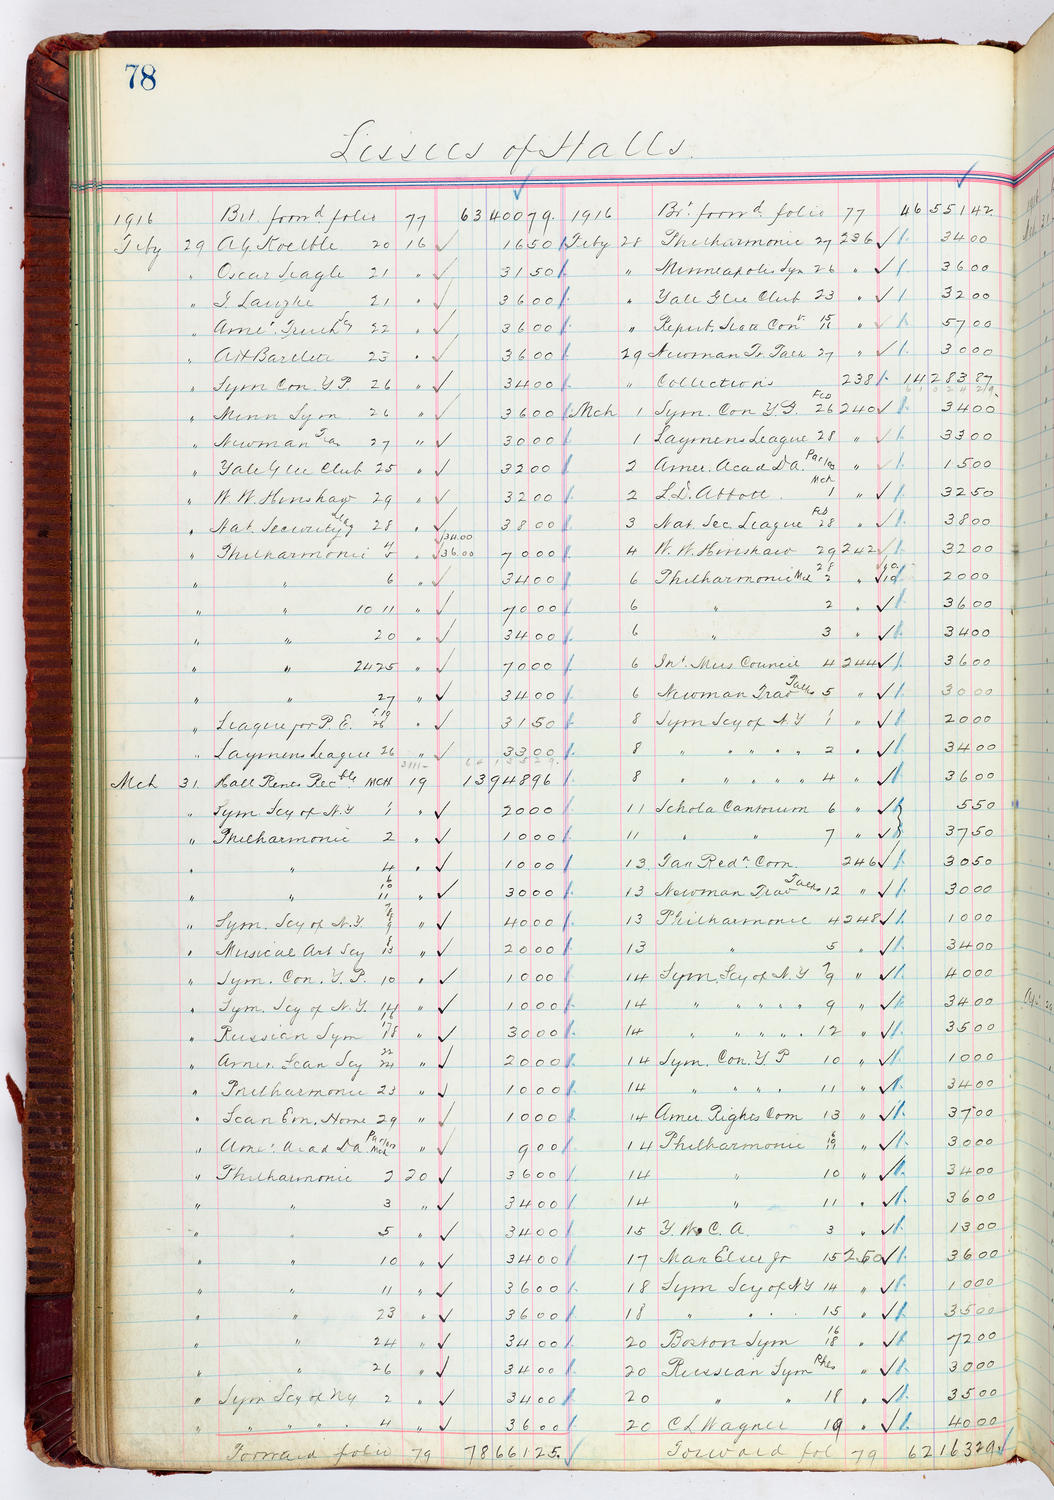 78
Lessees of Halls.
1916 Brt. forwd folio 77 6340079.
Feby 29 A.G. Koelble 20 16 1650
" Oscar Seagle 21 " 3150
" 21 " 3600
" 22 " 3600
" A H Bartlett 23 " 3600
" Sym Con. Y P. 26 " 3400
" Minn Sym 26 " 3600
" Newman Trav 27 " 3000
" Yale Glee Club 25 " 3200
" W. W. Hinshaw 29 " 3200
" Nat. Security Leag 28 " 3800
" Philharmonic 4 5 " 34.00 36.00 7000
" " 6 " 3400
" " 10 11 " 7000
" " 20 " 3400
" " 24 25 " 7000
" " 27 " 3400
" League for P. E. " 3150
" Laymens League 26 " 3300
Mch 31 Hall Rents Recble MCH 19 1394896
" Sym Scy of N.Y 1 " 2000
" Philharmonic 2 " 1000
" " 4 " 1000
" " 6 10 11 " 3000
" Sym. Scy of N.Y. " 4000
" Musical Art Scy 8 13 " 2000
" Sym. Con. Y. P. 10 " 1000
" Sym. Scy of N.Y. 14 " 1000
" Russian Sym " 3000
" Amer. Scan Scy 22 24 " 2000
" Philharmonic 23 " 1000
" Scan Em. Home 29 " 1000
" Amer. Acad Da. Parlor Mch " 900
" Philharmonic 2 20 3600
" " 3 " 3400
" " 5 " 3400
" " 10 " 3400
" " 11 " 3600
" " 23 " 3600
" " 24 " 3400
" " 26 " 3400
" Sym Scy of Ny 2 " 3400
" " " " 4 " 3600
Forward folio 79 7866125.
1916 Br't forwd folio 77 4655142.
Feby 28 Philharmonic 27 236 3400
" Minneapolis Sym 26 " 3600
" Yale Glee Club 23 " 3200
" Repub. State Conv. 15 16 " 5700
29 Newman Tr. Talk 27 " 3000
" Collections 238 14 283 87
Mch 1 Sym. Con Y.P. Feb 26 240 3400
1 Laymens League 28 " 3300
2 Amer. Acad Da. Parlor " 1500
2 L.D. Abbott. Mch 1 " 3250
3 Nat. Sec. League Feb 28 " 3800
4 W. W. Hinshaw 29 242 3200
6 Philharmonic Mch 2 " 2000
6 " 2 " 3600
6 " 3 " 3400
6 Int Mus Council 4 244 3600
6 Newman Trav Talks 5 " 3000
8 Sym Scy of N.Y 1 " 2000
8 " " " " " 2 " 3400
8 " " " " " 4 " 3600
11 Schola Cantorum 6 " 550
11 " " 7 " 3750
13 Tax Redn. Com. 246 3050
13 Newman Trav Talks 12 " 3000
13 Philharmonic 4 248 1000
13 " 5 " 3400
14 Sym. Scy of N.Y 7 9 " 4000
14 " " " " " 9 " 3400
14 " " " " " 12 " 3500
14 Sym. Con. Y. P 10 " 1000
14 " " " " 11 " 3400
14 Amer. Rights Com 13 " 3700
14 Philharmonic " 3000
14 " 10 " 3400
14 " 11 " 3600
15 Y. W. C. A. 3 " 1300
17 Man Elser Jr 15 250 3600
18 Sym Scy of NY 14 " 1000
18 " " " 15 " 3500
20 Boston Sym 16 18 " 7200
20 Russian Sym " 3000
20 " " 18 " 3500
20 C L Wagner 19 " 4000
Forward fol 79 6216329.